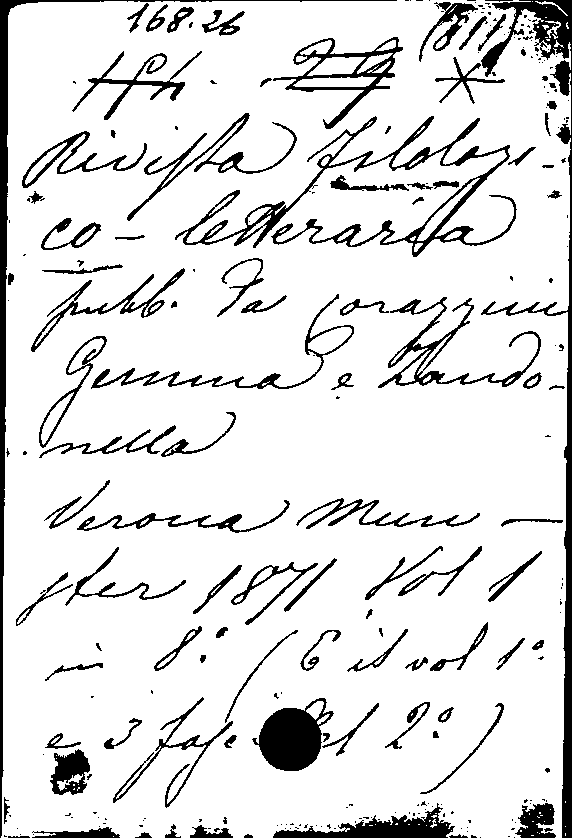 168.26 (811)
184. 29 X
Rivista Filologi-
co-letteraria
pubb. Da Corazzini
Gemma e Zando-
nella
Verona Mun-
ster 1871 Vol 1
in 8.° (È il vol 1°
e 3 fasc. del 2°)